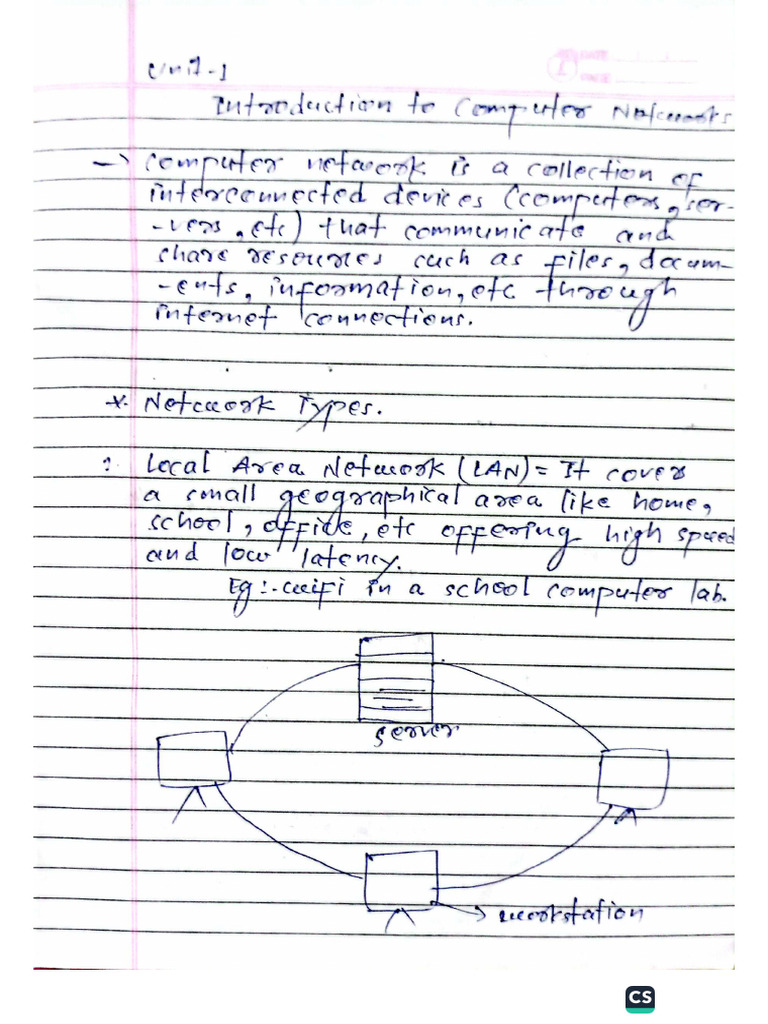 Unit-1
DATE
PAGE
1
Introduction to Computer Networks
→ Computer network is a collection of
interconnected devices (computers, ser-
-vers, etc) that communicate and
share resources such as files, docum-
-ents, information, etc through
internet connections.
* Network Types.
1. Local Area Network (LAN) = It covers
a small geographical area like home,
school, office, etc offering high speed
and low latency.
Eg:- wifi in a school computer lab.
server
→ workstation
CS